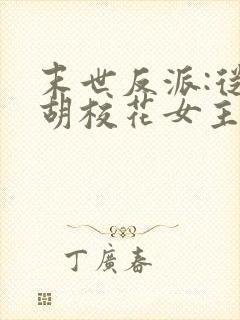 末世反派:從
胡校花女主
丁廣春